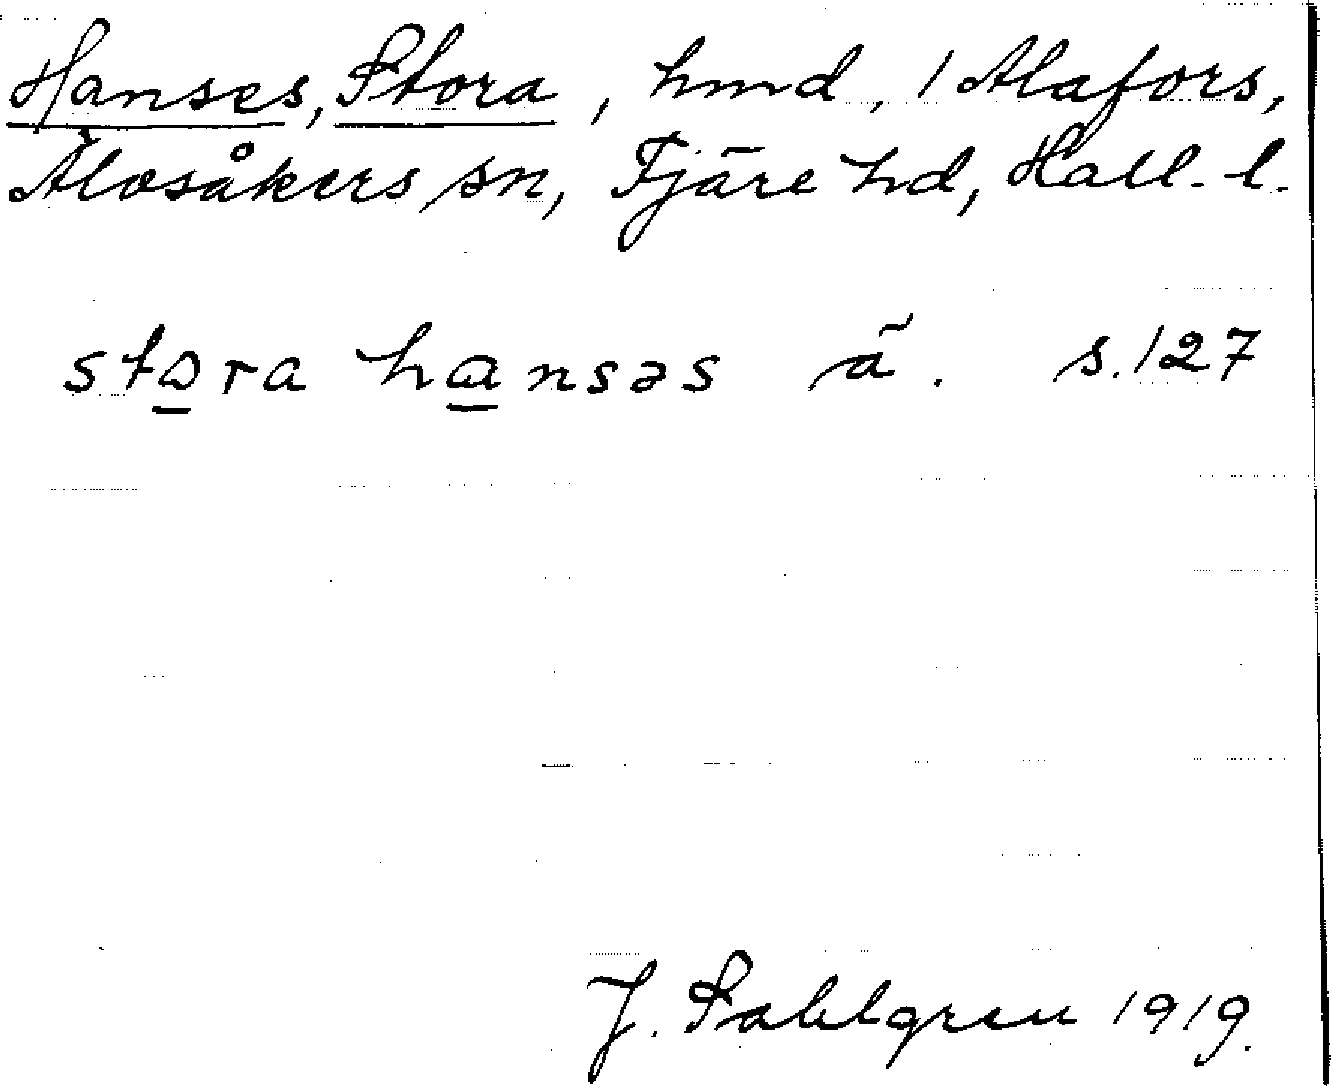 Hanses, Stora, hmd, 1 Alafors,
Älvsåkers sn, Fjäre hd, Hall. l.
stora hansəs ã. s. 127
J. Sahlgren 1919.